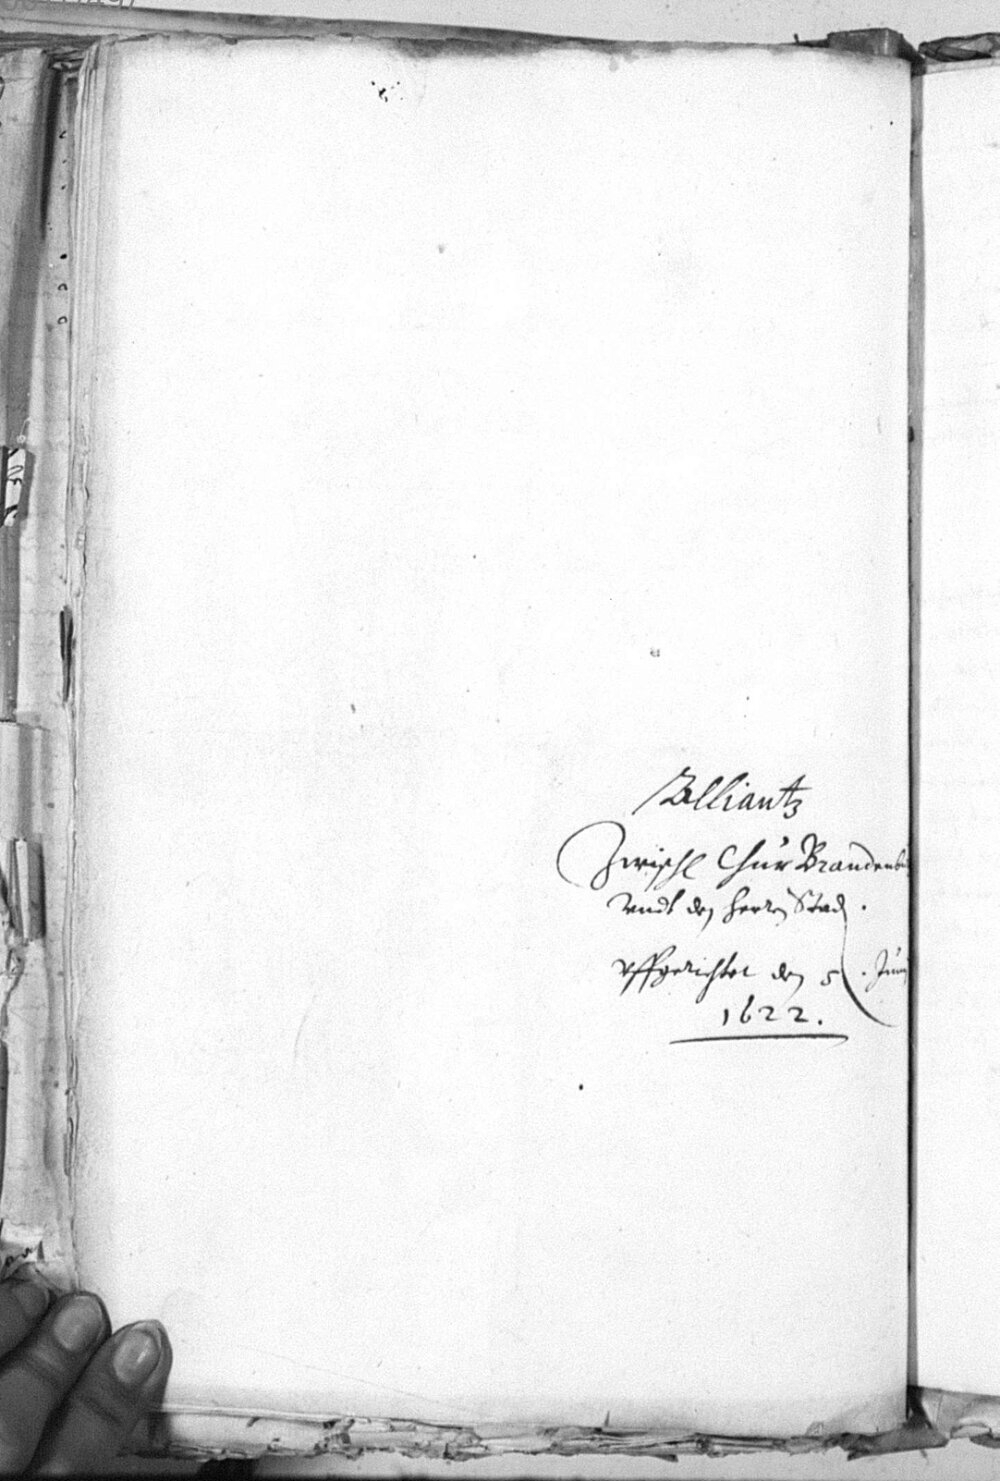 Alliantz
Zwischen Chur Brandenbu
vndt den Herren Staden.
vffgerichtet den 5. Juny
1622.